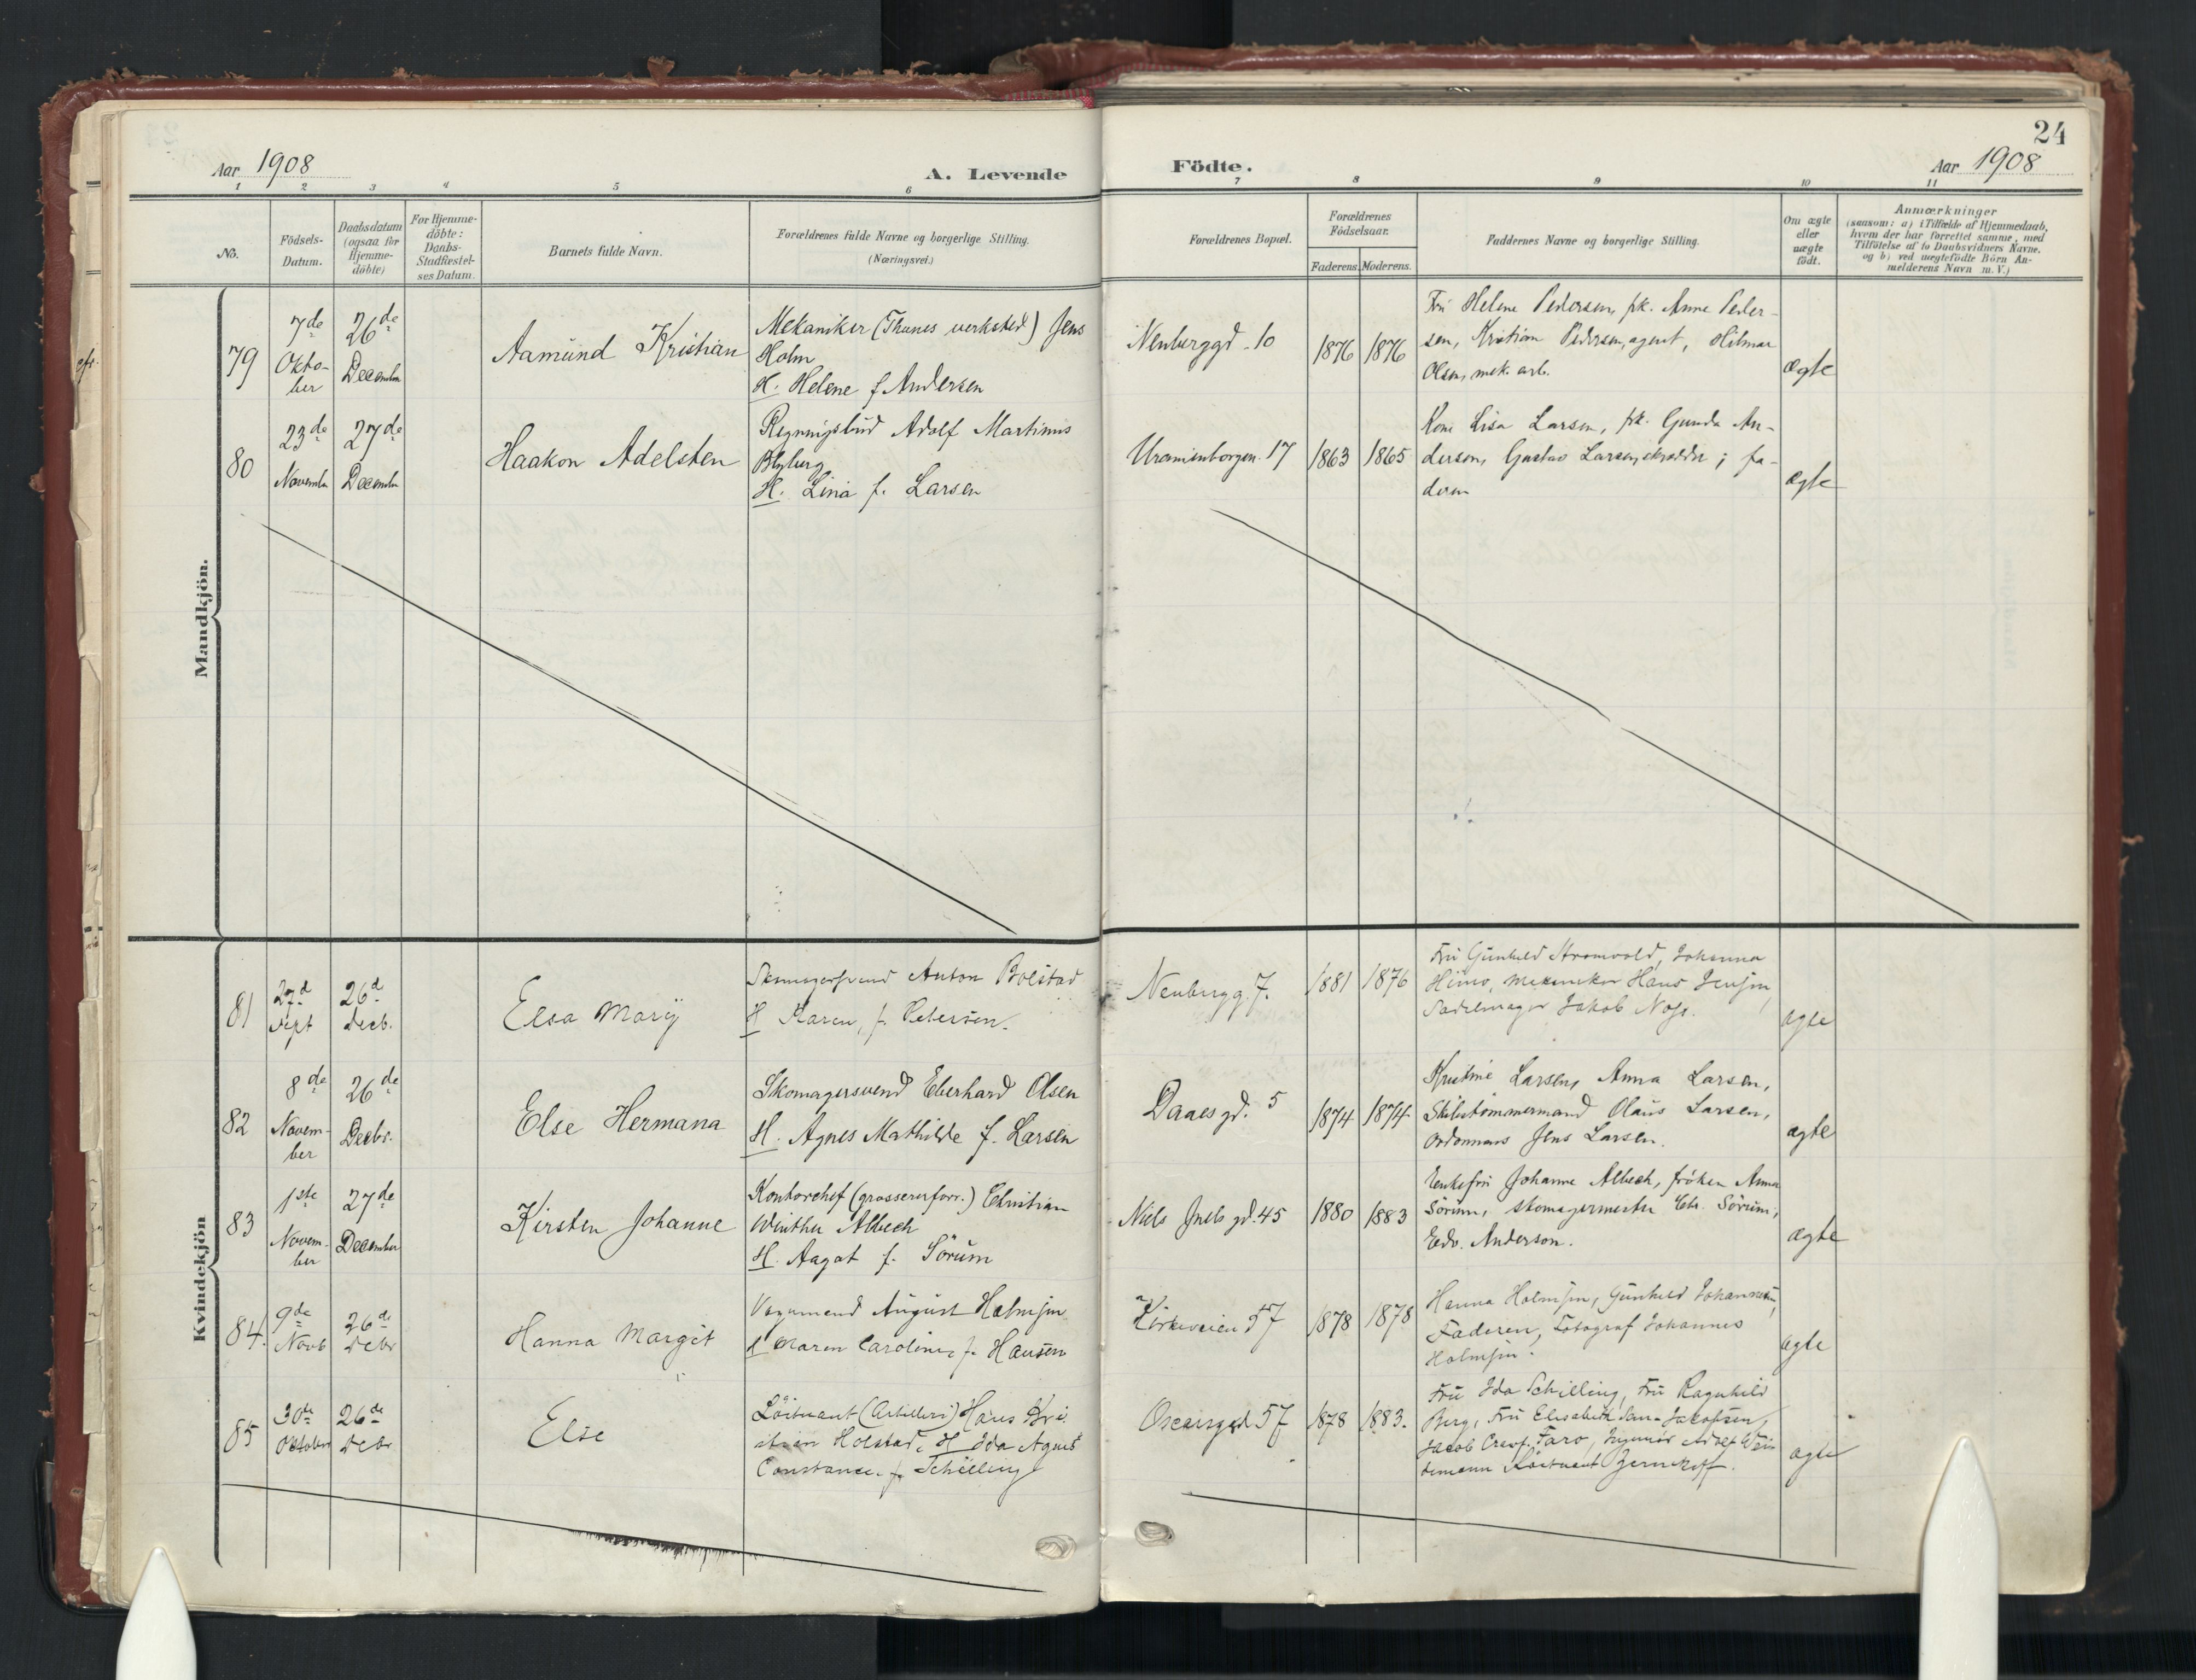 24
Aar 1908
A. Levende
Födte.
Aar 1908
1 2 3 4 5 6 7 8 9 10 11
No.
Födsels-
Datum.
Daabsdatum
(ogsaa for
Hjemme-
döbte)
For Hjemme-
döbte:
Daabs-
Stadfæstel-
ses Datum.
Barnets fulde Navn.
Forældrenes fulde Navne og borgerlige Stilling.
(Næringsvei.)
Forældrenes Bopæl.
Forældrenes
Födselsaar.
Faderens. Moderens.
Faddernes Navne og borgerlige Stilling.
Om ægte
eller
uægte
födt.
Anmærkninger
(saasom: a) i Tilfælde af Hjemmedaab,
hvem der har forrettet samme, med
Tilföielse af to Daabsvidners Navne.
og b) ved uægtefödte Börn An-
melderens Navn m. V.)
Mandkjön.
79
7de
Okto-
ber
26de
December
Aamund Kristian
Mekaniker (Thunes verksted) Jens
Holm
H. Helene f. Andersen
Neuberggd. 10
1876 1876
Fru Helene Pedersen, pk. Anna Peder-
sen, Kristian Pedersen, agent, Hilmar
Olsen, mek. arb.
ægte
80
23de
Novembr
27de
December
Haakon Adelsten
Regningsbud Adolf Martinus
Blyberg
H. Lina f. Larsen
Uranienborgen. 17
1863 1865
Kone Lisa Larsen, pk. Gunda An-
dersen, Gustav Larsen, skrædder; fa-
deren
ægte
Kvindekjön
81
27d
Sept
26d
Decb.
Elsa Mary
Anton Bolstad
H Karen, f. Petersen.
Neubergg. 7.
1881 1876
Fru Gunhild Stromvold, Johanna
Mekaniker Hans Jensen,
Sadelmager Jakob
ægte
82
8de
Novem-
ber
26de
Decbr.
Else Hermana
Skomagersvend Eberhard Olsen
H. Agnes Mathilde f. Larsen
Daaesgd. 5
1874 1874
Kristine Larsen, Anna Larsen,
Skibstömmermand Olaus Larsen,
Ordonnans Jens Larsen.
ægte
83
1ste
Novem-
ber
27de
December
Kirsten Johanne
Kontorchef (grossererforr.) Christian
Winther Albech
H. Aagot f. Sörum
Niels Juels gd. 45
1880 1883
Enkefru Johanne Albech, fröken Anna
Sörum, skomagermester Chr. Sörum,
Edv. Anderson.
ægte
84.
9de
Novb
26de
Decbr
Hanna Margit
Vognmand August Holmsen
H Maren Caroline, f. Hansen
Kirkeveien 57
1878 1878
Hanna Holmsen, Gunhild Johannesen,
Faderen, Fotograf Johannes
Holmsen.
ægte
85
30de
Oktober
26de
Decbr
Else
Löitnant (Artilleri) Hans Kri-
stian Holstad, H Ida Agnes
Constance f. Schilling
Oscarsgd 57
1878 1883.
Fru Ida Schilling, Fru Ragnhild
Berg, Fru Elisabeth Jacobsen,
Jacob Faro, Ingeniör Adolf
Löitnant
ægte